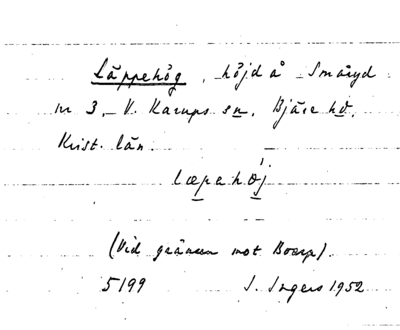 Läppehög, höjd å Smäryd
nr 3, V. Karups sn, Bjäre hd,
Krist. län.
læpehøj
(Vid gränsen mot Boarp).
5199 I. Ingers 1952